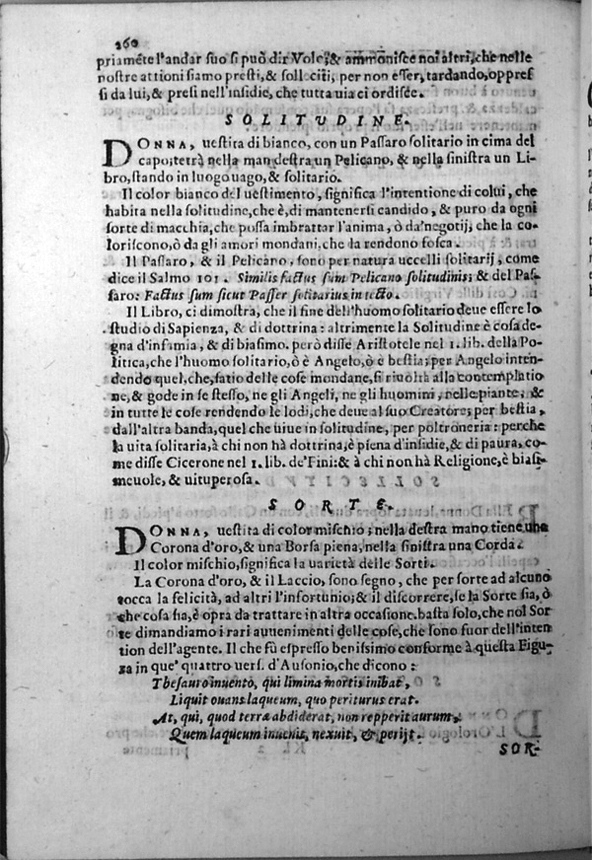 260
priaméte l'andar suo si può dir Volo; & ammonisce noi altri, che nelle
nostre attioni siamo presti, & solleciti, per non esser, tardando, oppres
si da lui, & presi nell'insidie, che tuttauia ci ordisce.
SOLITUDINE.
DONNA, uestita di bianco, con un Passaro solitario in cima del
capo; terrà nella man destra un Pelicano, & nella sinistra un Li-
bro, stando in luogo uago, & solitario.
Il color bianco del uestimento, significa l'intentione di colui, che
habita nella solitudine, che è, di mantenersi candido, & puro da ogni
sorte di macchia, che possa imbrattar l'anima, ò da'negotij, che la co-
loriscono, ò da gli amori mondani, che la rendono fosca.
Il Passaro, & il Pelicano, sono per natura uccelli solitarij, come
dice il Salmo 101. Similis factus sum Pelicano solitudinis; & del Pas-
saro: Factus sum sicut Passer solitarius in tecto.
Il Libro, ci dimostra, che il fine dell'huomo solitario deue essere lo
studio di Sapienza, & di dottrina: altrimente la Solitudine è cosa de-
gna d'infamia, & di biasimo. però disse Aristotele nel 1. lib. della Po-
litica, che l'huomo solitario, ò è Angelo, ò è bestia; per Angelo inten-
dendo quel, che, satio delle cose mondane, si riuolta alla contemplatio
ne, & gode in se stesso, ne gli Angeli, ne gli huomini, nelle piante, &
in tutte le cose rendendo le lodi, che deue al suo Creatore; per bestia,
dall'altra banda, quel che uiue in solitudine, per poltroneria: perche
la uita solitaria, à chi non hà dottrina, è piena d'insidie, & di paura, co-
me disse Cicerone nel 1. lib. de'Fini: & à chi non hà Religione, è biasi-
meuole, & uituperosa.
SORTE.
DONNA, uestita di color mischio; nella destra mano tiene una
Corona d'oro, & una Borsa piena, nella sinistra una Corda.
Il color mischio, significa la uarietà delle Sorti.
La Corona d'oro, & il Laccio, sono segno, che per sorte ad alcuno
tocca la felicità, ad altri l'infortunio; & il discorrere, se la Sorte sia, ò
che cosa sia, è opra da trattare in altra occasione. basta solo, che noi Sor
te dimandiamo i rari auuenimenti delle cose, che sono fuor dell'inten
tion dell'agente. Il che fù espresso benissimo conforme à questa Figu-
ra in que' quattro uersi d'Ausonio, che dicono:
Thesauro inuento, qui limina mortis inibat,
Liquit ouans laqueum, quo periturus erat.
At, qui, quod terræ abdiderat, non repperit aurum,
Quem laqueum inuenit, nexuit, & perijt.
SOR-